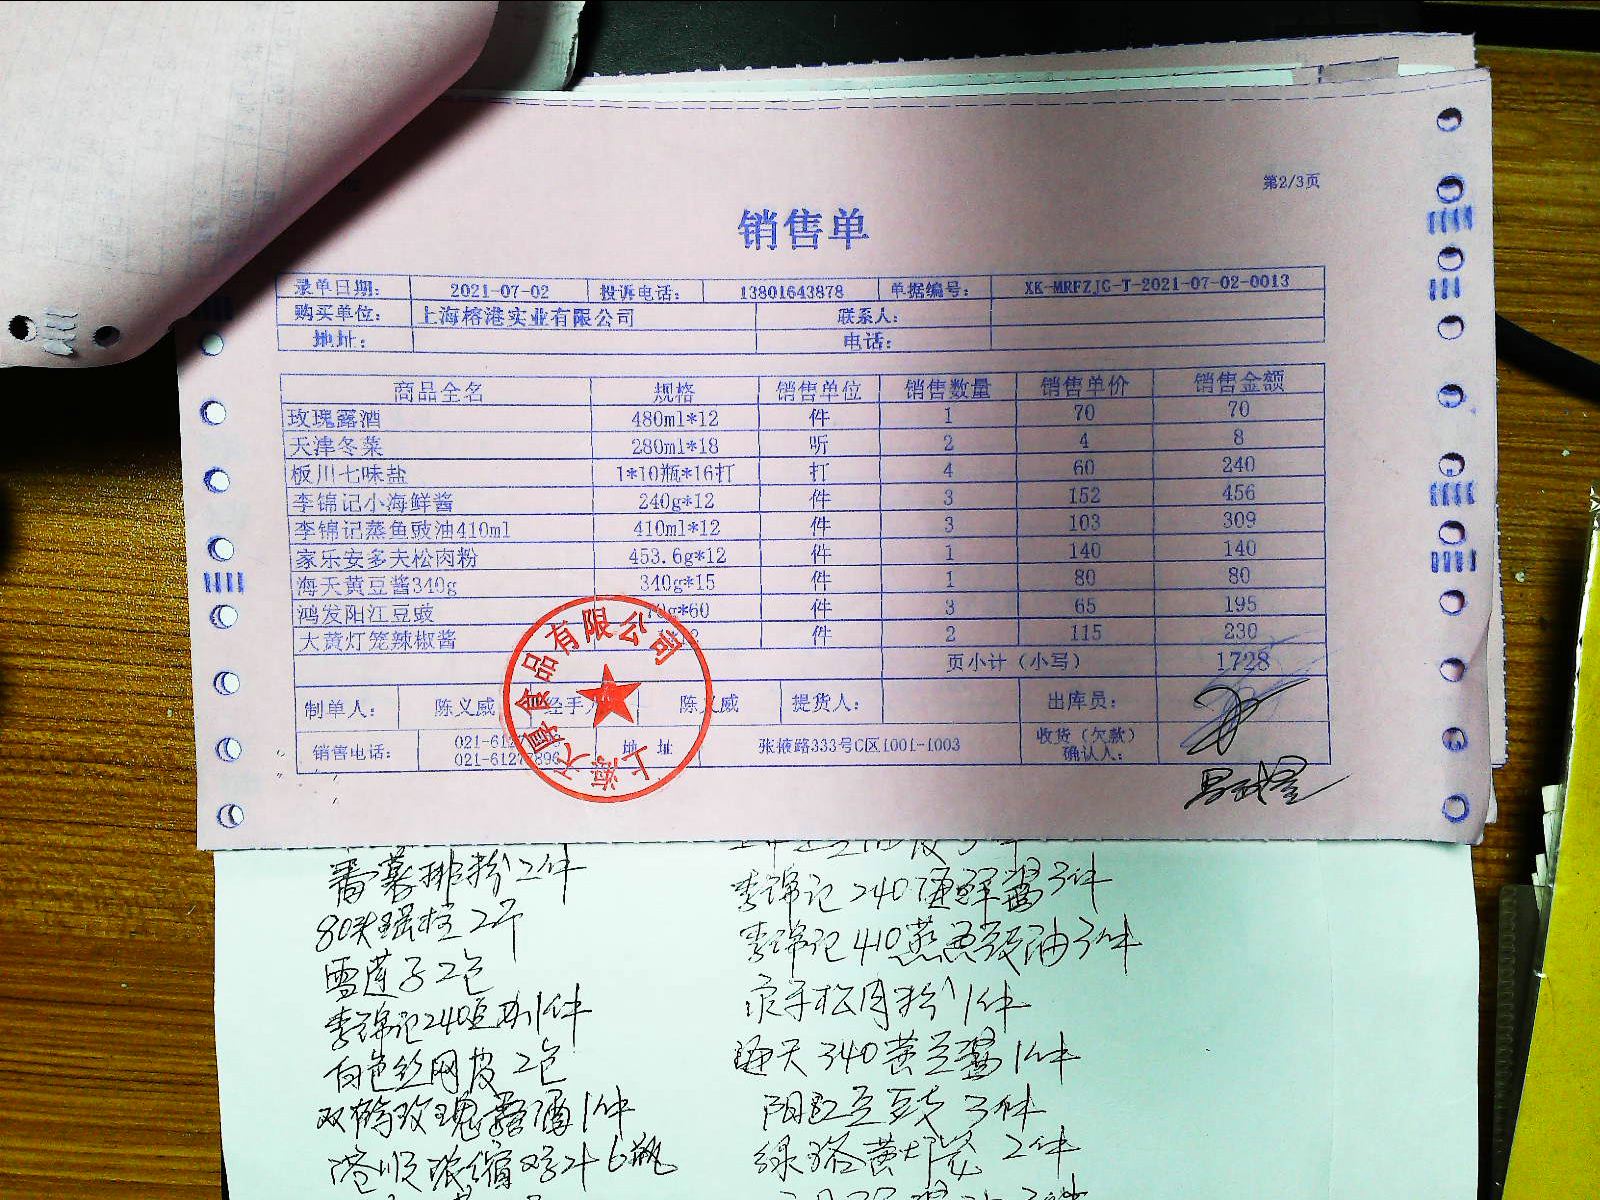 第2/3页
销售单
录单日期： 2021-07-02 投诉电话： 13801643878 单据编号： XK-MRFZJC-T-2021-07-02-0013
购买单位： 上海榕港实业有限公司 联系人：
地址： 电话：
商品全名 规格 销售单位 销售数量 销售单价 销售金额
玫瑰露酒 480ml*12 件 1 70 70
天津冬菜 280ml*18 听 2 4 8
板川七味盐 1*10瓶*16打 打 4 60 240
李锦记小海鲜酱 240g*12 件 3 152 456
李锦记蒸鱼豉油410ml 410ml*12 件 3 103 309
家乐安多夫松肉粉 453.6g*12 件 1 140 140
海天黄豆酱340g 340g*15 件 1 80 80
鸿发阳江豆豉 件 3 65 195
大黄灯笼辣椒酱 件 2 115 230
页小计（小写） 1728
制单人： 陈义威 经手人 陈义威 提货人： 出库员：
销售电话： 021-6127 地址 张掖路333号C区1001-1003 收货（欠款）
021-6127 896 确认人：
上海天厚食品有限公司
番薯排粉2件
80头瑶柱2斤
雪莲子2包
李锦记240 1件
白色丝网皮2包
双鹤玫瑰露酒1件
6瓶
李锦记240海鲜酱3件
李锦记410蒸鱼豉油3件
松肉粉1件
海天340黄豆酱1件
阳江豆豉3件
2件